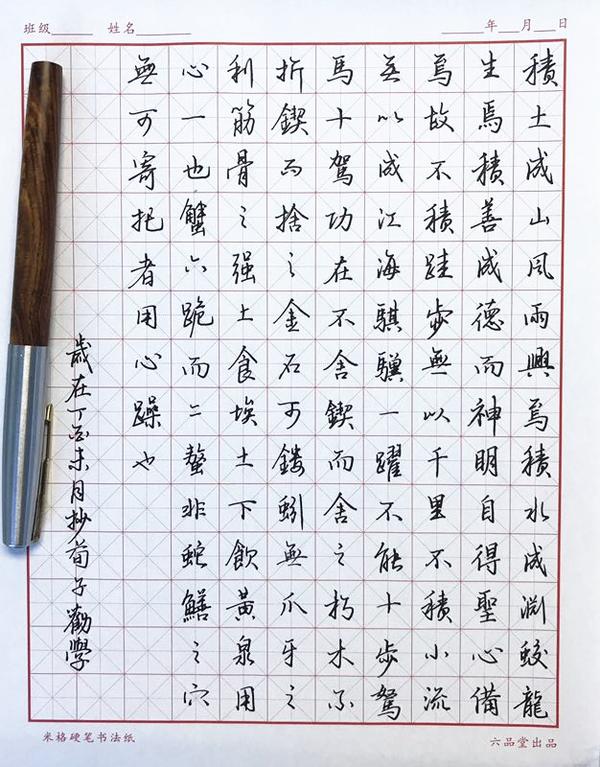 班级 姓名 年 月 日
積土成山風雨興焉積水成淵蛟龍
生焉積善成德而神明自得聖心備
焉故不積跬步無以千里不積小流
无以成江海騏驥一躍不能十步駑
馬十駕功在不舍鍥而舍之朽木不
折鍥而捨之金石可鏤蚓無爪牙之
利筋骨之强上食埃土下飲黃泉用
心一也蟹六跪而二螯非蛇鱔之穴
無可寄托者用心躁也
歲在丁酉未月抄荀子勸學
米格硬笔书法纸
六品堂出品